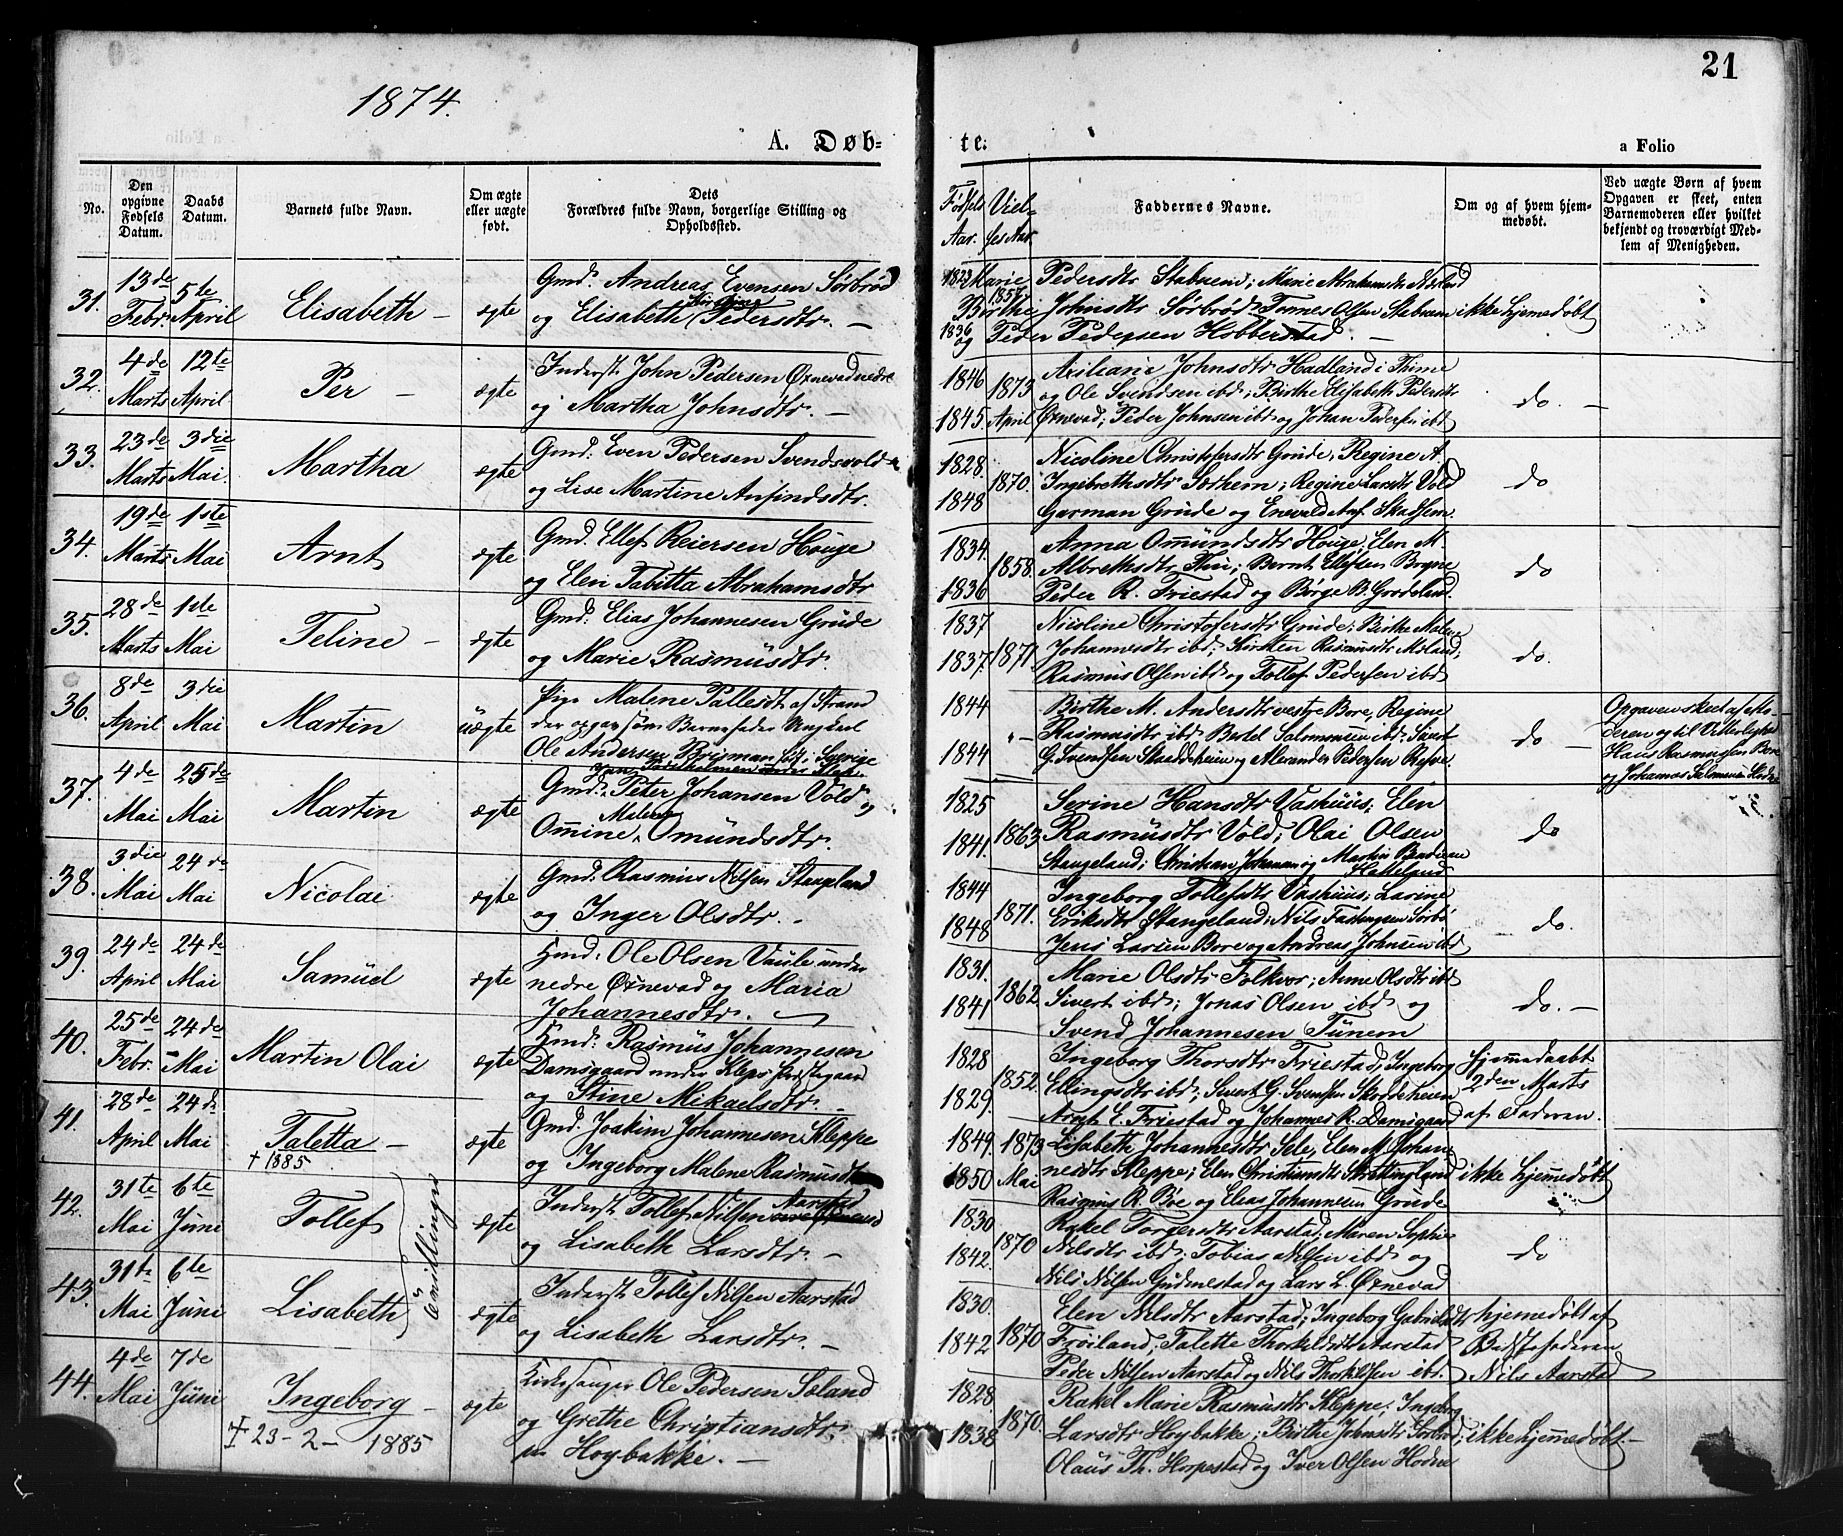 21
1874.
A. Døb-
te.
a Folio
No.
Den opgivne Fødsels Datum.
Daabs Datum.
Barnets fulde Navn.
Om ægte eller uægte født.
Dets Forældres fulde Navn, borgerlige Stilling og Opholdssted.
Fødsels Aar.
Viel- ses Aar.
Faddernes Navne.
Om og af hvem hjem- medøbt.
Ved uægte Børn af hvem Opgaven er skeet, enten Barnemoderen eller hvilket bekjendt og troværdigt Med- lem af Menigheden.
31. 13de Febr. 5te April Elisabeth - ægte
Gmd. Andreas Evensen Sørbrød
og Elisabeth Pedersdtr. -
1823 1857 1836
Marie Pedersdtr Stabuem; Marie Abrahamsdtr
Berthe Johnsdtr Sørbrød Tønnes Olsen Stabuem
og Peder Pedersen Hobberstad. -
ikke hjemmedøbt
32. 4de Marts 12te April Per - ægte
Inderst John Pedersen Øxnevad nedre
og Martha Johnsdtr. -
1846 1845. 1873 April
Johnsdtr Hadland i Thime
og Ole Svendsen ibd; Birthe Elisabeth Pedersdtr
Øxnevad; Peder Johnsen ibd og Johan Pedersen ibd
do. -
33. 23de Marts 3die Mai. Martha ægte
Gmd. Even Pedersen Svendsvold
og Lise Martine Anfindsdtr.
1828. 1848 1870.
Nicoline Christofersdtr Grude, Regine A.
Ingebrethsdtr Sothern; Regine Larsdtr Vold
Garman Grude og Enevald Anf. Skasshem.
do
34. 19de Marts 1ste Mai Arnt ægte
Gmd. Ellef Reiersen Houge
og Elen Tabitta Abrahamsdtr
1834. 1836 1858.
Anna Omundsdtr Houge, Elen M.
Albrethsdtr Thu; Bernt Ellefsen Bryne
Peder R. Friestad og Børge B. Grødeland.
do
35. 28de Marts 1ste Mai Teline - ægte
Gmd. Elias Johannesen Grude
og Marie Rasmusdtr
1837 1837. 1871.
Nicoline Christofersdtr Grude; Birthe Malene
Johannesdtr ibd; Kirsten Rasmusdtr
Rasmus Olsen ibd og Tollef Pedersen ibd
do.
36. 8de April 3die Mai Martin uægte
Pige Malene Pallesdt af Strand
der opgav som Barnefader Ungkarl
Ole Andersen Brisman fød i Sverige
1844 1844 -
Birthe M. Andersdtr vestre Bore, Regine
Rasmusdtr ibd Bertel Salomonsen ibd. Sivert
G. Svendsen Skoddeheien og Alexander Pedersen Refve.
do -
Opgaven skeet af Mo-
deren og til Vitterlighed
Hans Rasmussen Bore
og Johannes Salomonsen
37. 4de Mai 25de Mai Martin ægte
Gmd. Peter Johansen Vold og
Omine Malene Omundsdtr.
1825 1841. 1863.
Serine Hansdtr Vashuus; Elen
Rasmusdtr Vold; Olai Olsen
Stangeland; Christian Johannes og Martin
Hatteland
do
38. 3die Mai 24de Mai Nicolai ægte
Gmd. Rasmus Nilsen Stangeland
og Inger Olsdtr. -
1844 1848 1871.
Ingeborg Tollefsdtr Vashuus; Larine
Eriksdtr Stangeland; Nils Sørbø
Jens Larsen Bore og Andreas Johnsen ibd
do.
39. 24de April 24de Mai Samuel ægte
Hmd. Ole Olsen Vaule under
nedre Øxnevad og Maria
Johannesdtr.
1831. 1841 1862.
Marie Olsdtr Folkvor; Anne Olsdtr ibd
Sivert ibd; Jonas Olsen ibd og
Svend Johannesen Tunem
do. -
40. 25de Febr. 24de Mai Martin Olai ægte
Hmd. Rasmus Johannesen
Damsgaard under Klep Præstegaard
og Stine Mikaelsdtr.
1828 1829. 1852.
Ingeborg Thorsdtr Friestad, Ingeborg
Ellingsdtr ibd; Sivert G. Svensen Skoddeheien
E. Friestad og Johannes R. Damsgaard
hjemmedaabt
2den Marts
af Faderen.
41. 28de April 24de Mai Taletta - ægte
† 1885
Gmd. Joakim Johannesen Kleppe
og Ingeborg Malene Rasmusdtr
1849. 1850 1873 Mai
Lisabeth Johannesdtr Sele, Elen M. Johan-
nesdtr Kleppe; Elen Christiansdtr Stokkingland
Rasmus R. Bøe og Elias Johannesen Grude
ikke hjemmedøbt
42. 31te Mai 6te Juni Tollef ægte
Tvillinger
Inderst Tollef Nilsen Aarstad
og Lisabeth Larsdtr. -
1830 1842. 1870
Rakel Torgersdtr Aarstad; Maren Sophie
Nilsdtr ibd. Tobias Nilsen ibd og
Nils Nilsen Gudmestad og Lars L. Øxnevad
do
43. 31te Mai 6te Juni Lisabeth ægte
Inderst Tollef Nilsen Aarstad
og Lisabeth Larsdtr. -
1830. 1842 1870
Elen Nilsdtr Aarstad; Ingeborg Gabrielsdtr
Frøiland; Talette Thorkildsdtr Aarstad
Peder Nilsen Aarstad og Nils Thorkilsen ibd.
hjemmedøbt af
Bedstefaderen
Nils Aarstad
44. 4de Mai 7de Juni Ingeborg - ægte
† 23-2-1885
Kirkesanger Ole Pedersen Sæland
og Grethe Christiansdtr.
paa Høybakke. -
1828 1838 1870.
Rakel Marie Rasmusdtr Kleppe; Ingeborg
Larsdtr Høybakke; Birthe Johnsdtr Sørbrød;
Olaus Th. Horpestad og Iver Olsen Hodne
ikke hjemmedøbt -